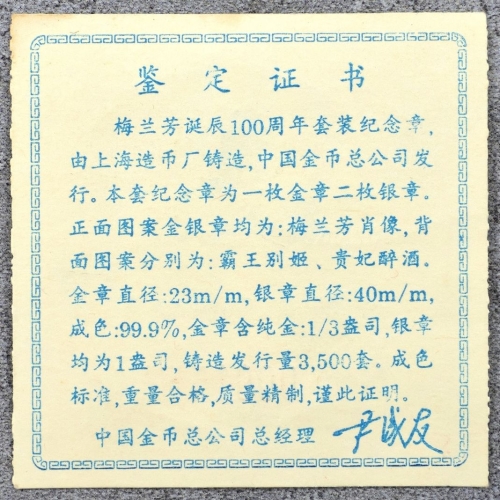 鉴定证书
梅兰芳诞辰100周年套装纪念章,
由上海造币厂铸造,中国金币总公司发
行。本套纪念章为一枚金章二枚银章。
正面图案金银章均为:梅兰芳肖像,背
面图案分别为:霸王别姬、贵妃醉酒。
金章直径:23m/m,银章直径:40m/m,
成色:99.9%,金章含纯金:1/3盎司,银章
均为1盎司,铸造发行量3,500套。成色
标准,重量合格,质量精制,谨此证明。
中国金币总公司总经理